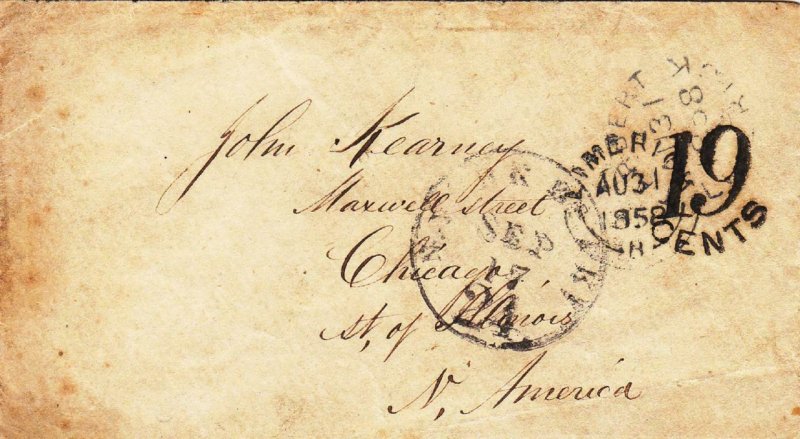 John Kearney
Maxwell Street
Chicago,
St, of Illinois
N, America
SEP
17
24
AU 31
1858
19
CENTS